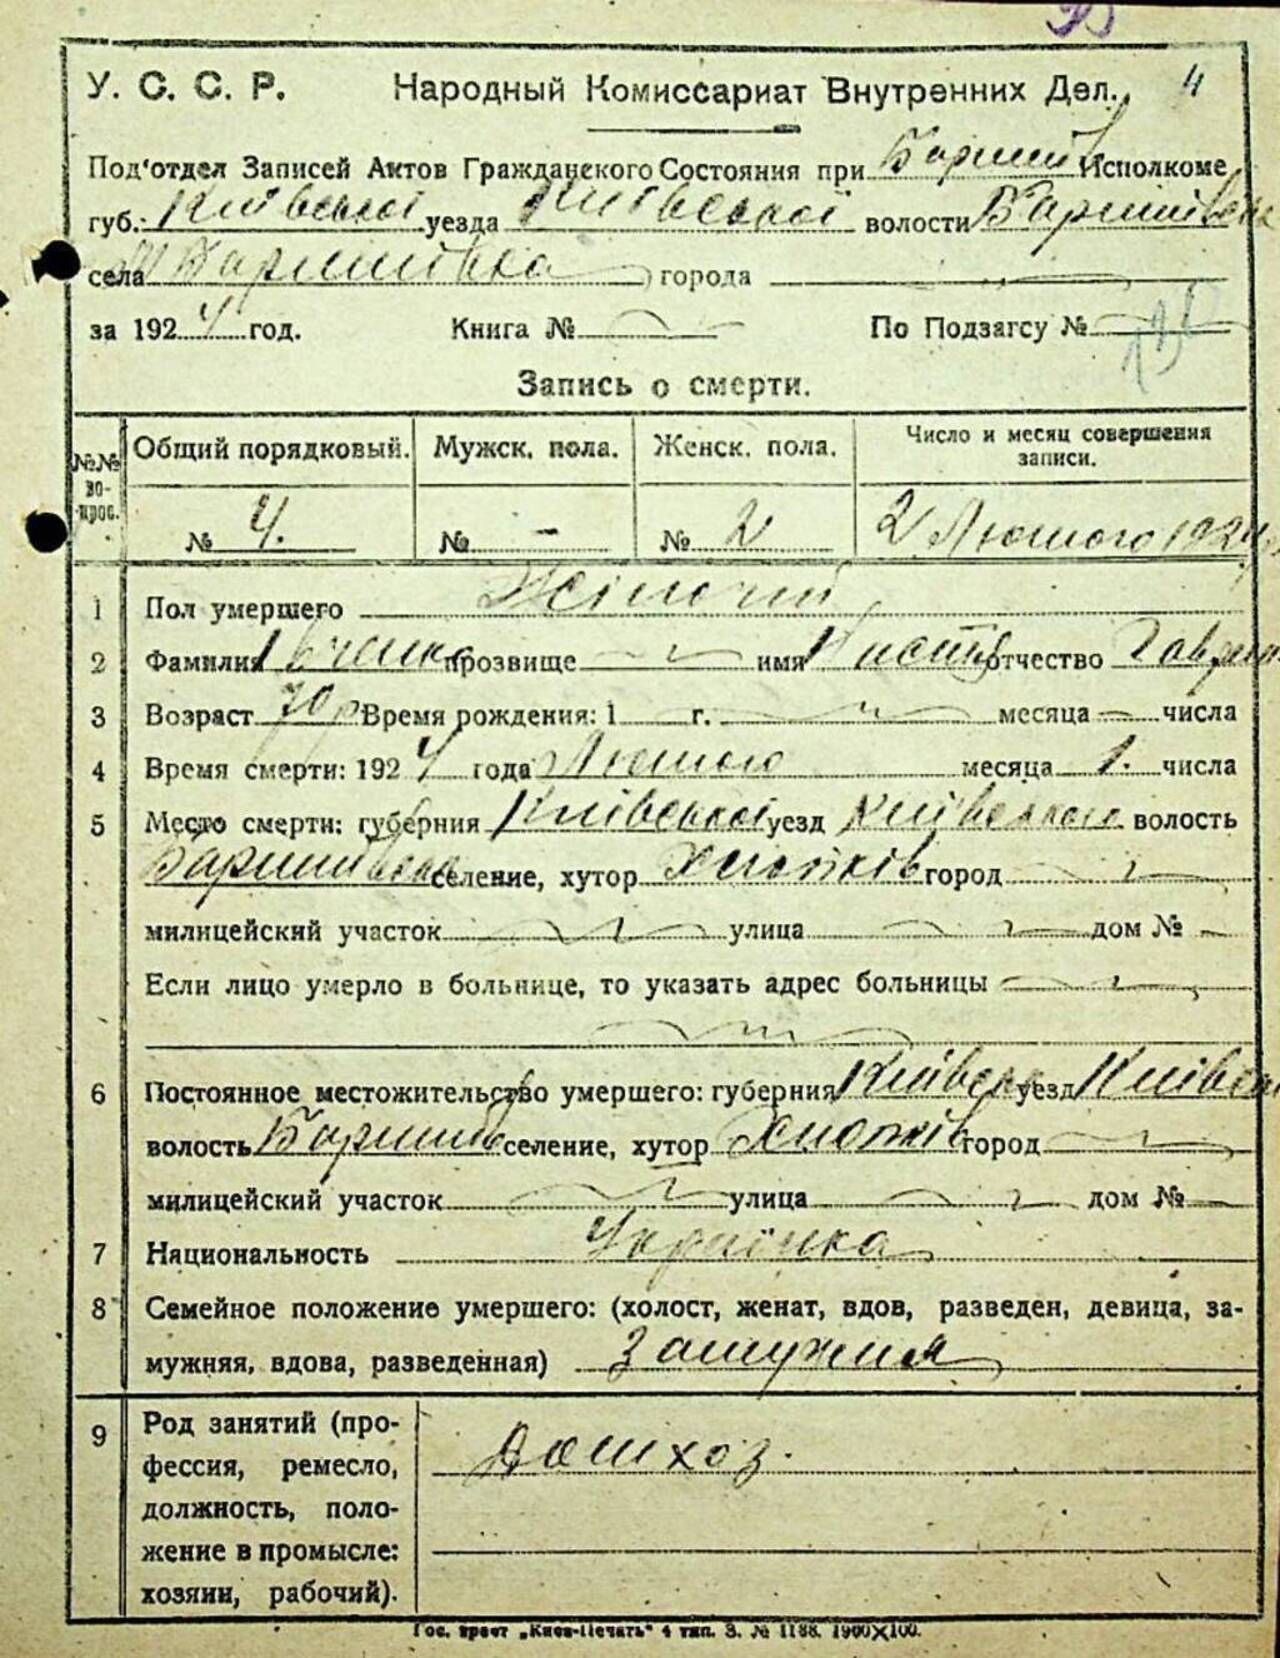 4
У. С. С. Р. Народный Комиссариат Внутренних Дел.
Под'отдел Записей Актов Гражданского Состояния при Баришів Исполкоме
губ. Київської уезда Київської волости Баришівськ
села Баришівка города
за 1924 год. Книга № По Подзагсу №
Запись о смерти.
№№ во-прос. Общий порядковый. Мужск. пола. Женск. пола. Число и месяц совершения записи.
№ 4. № - № 2 2 Лютого 1924
1 Пол умершего Жіночий
2 Фамилия прозвище имя отчество Гаврил
3 Возраст 70 р Время рождения: 1 г. месяца числа
4 Время смерти: 1924 года Лютого месяца 1. числа
5 Место смерти: губерния Київської уезд Київського волость
Баришівськ селение, хутор город
милицейский участок улица дом №
Если лицо умерло в больнице, то указать адрес больницы
6 Постоянное местожительство умершего: губерния Київськ уезд Київськ
волость Баришів селение, хутор город
милицейский участок улица дом №
7 Национальность Українка
8 Семейное положение умершего: (холост, женат, вдов, разведен, девица, за-
мужняя, вдова, разведенная) Замужня
9 Род занятий (про-
фессия, ремесло, Домхоз.
должность, поло-
жение в промысле:
хозяин, рабочий).
Гос. трест „Киев-Печать" 4 тип. З. № 1188. 1900×100.